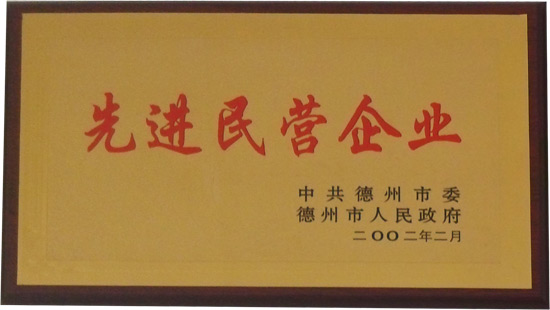 先进民营企业
中共德州市委
德州市人民政府
二〇〇二年二月